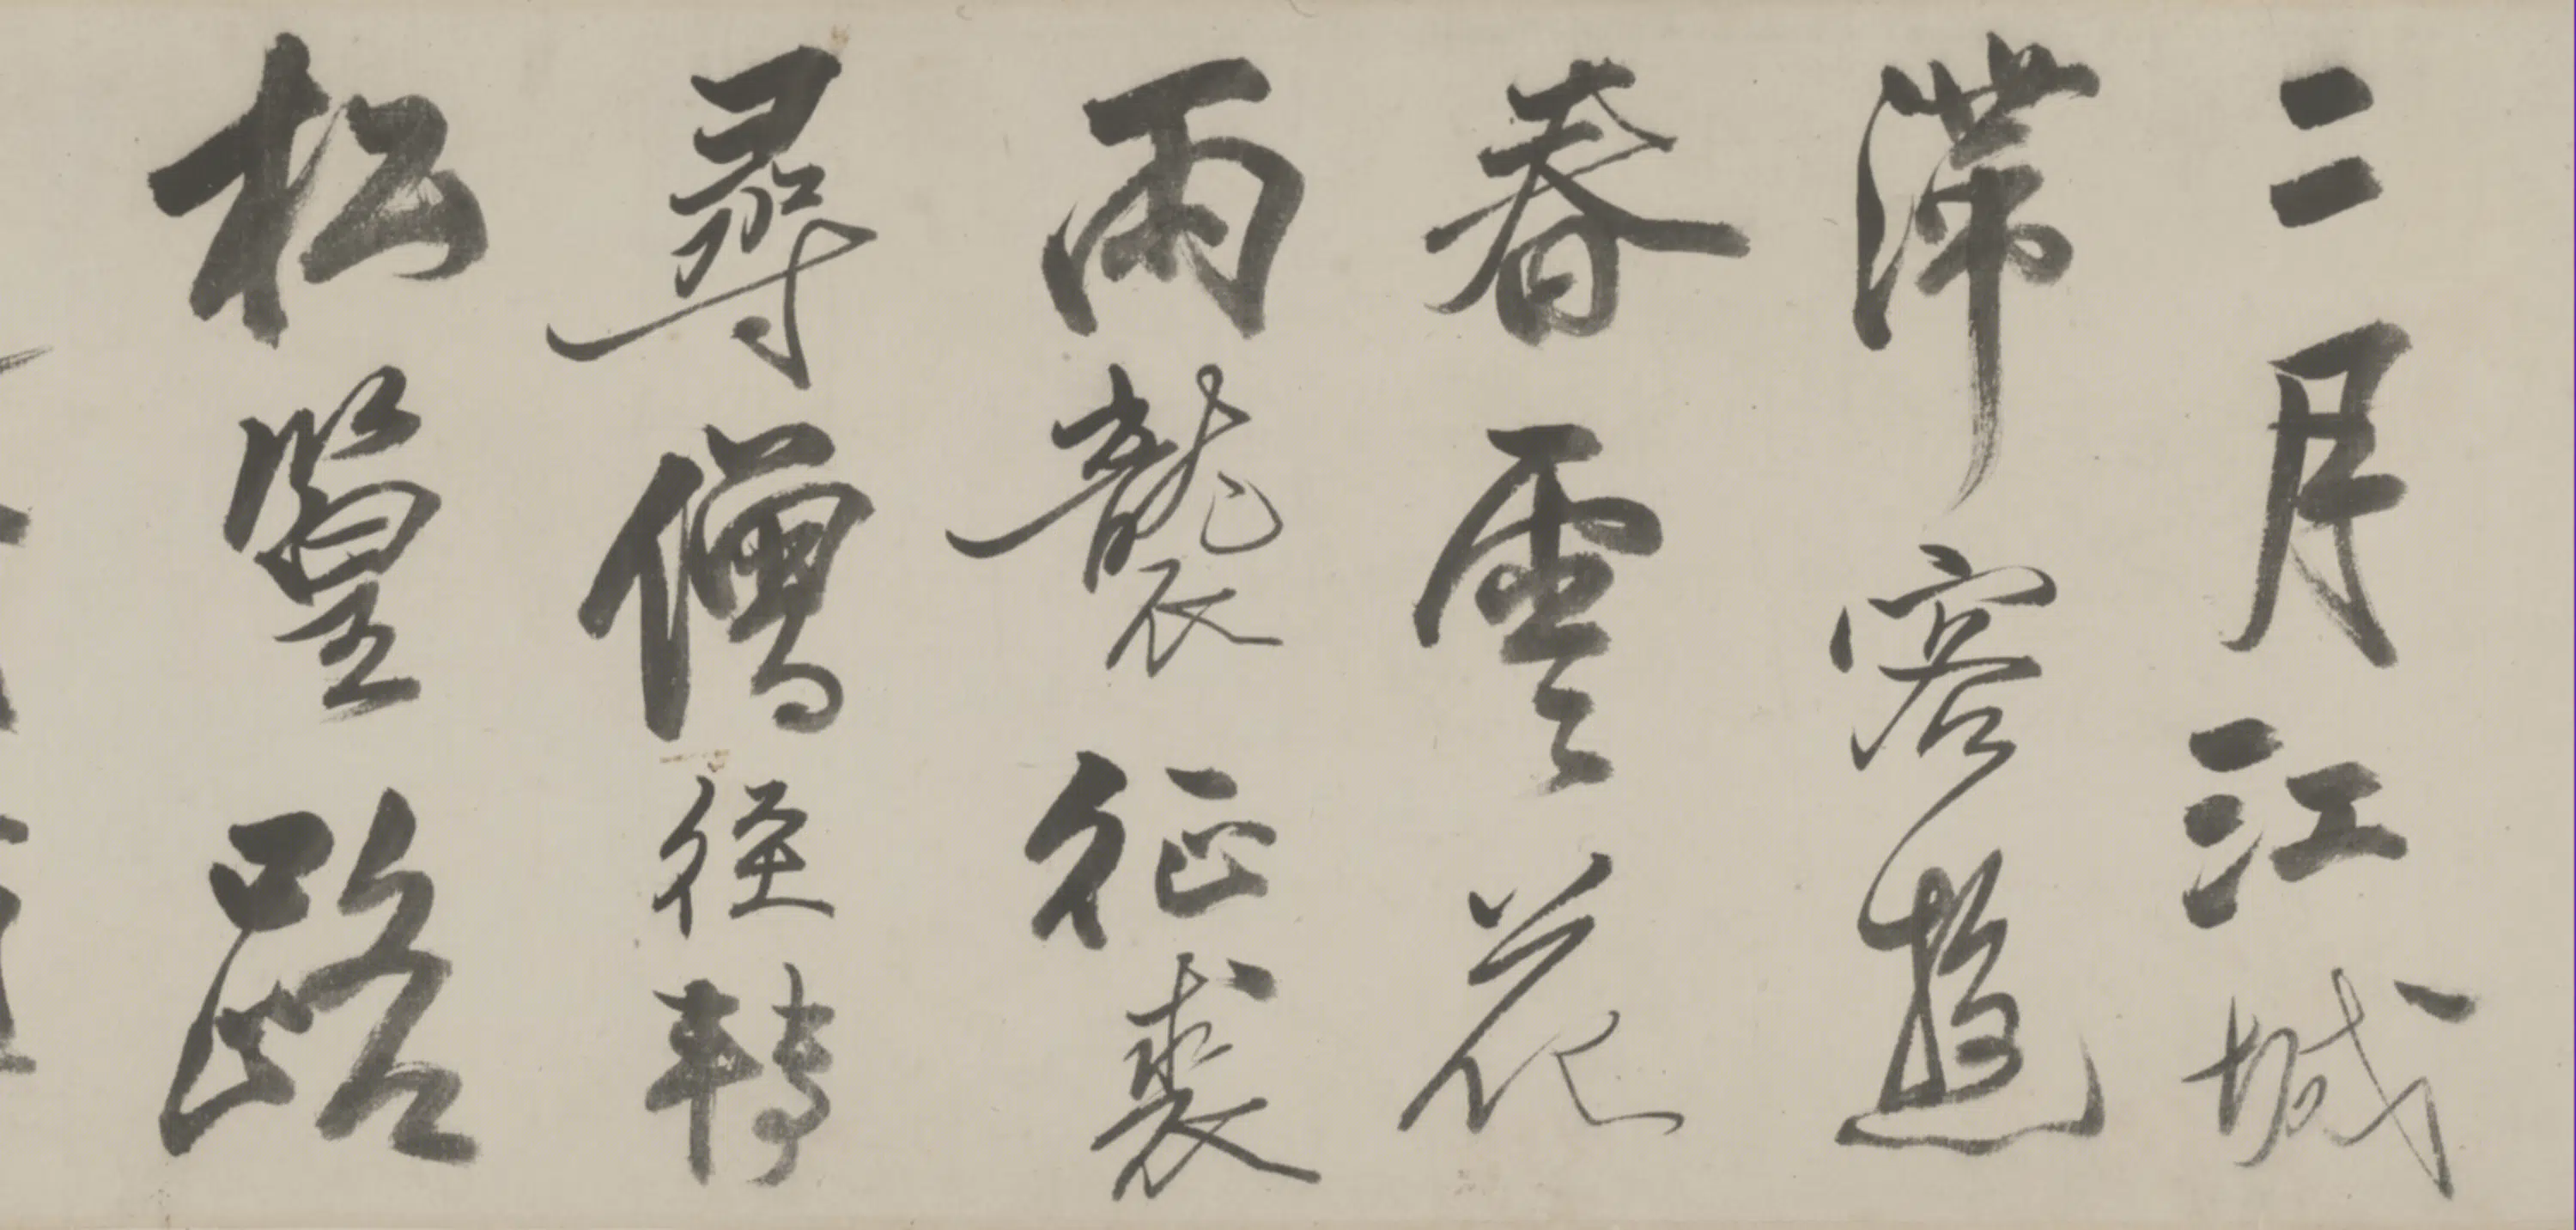 二月江城
滯客遊
春雲花
雨襲征裘
尋僧徑轉
松篁路